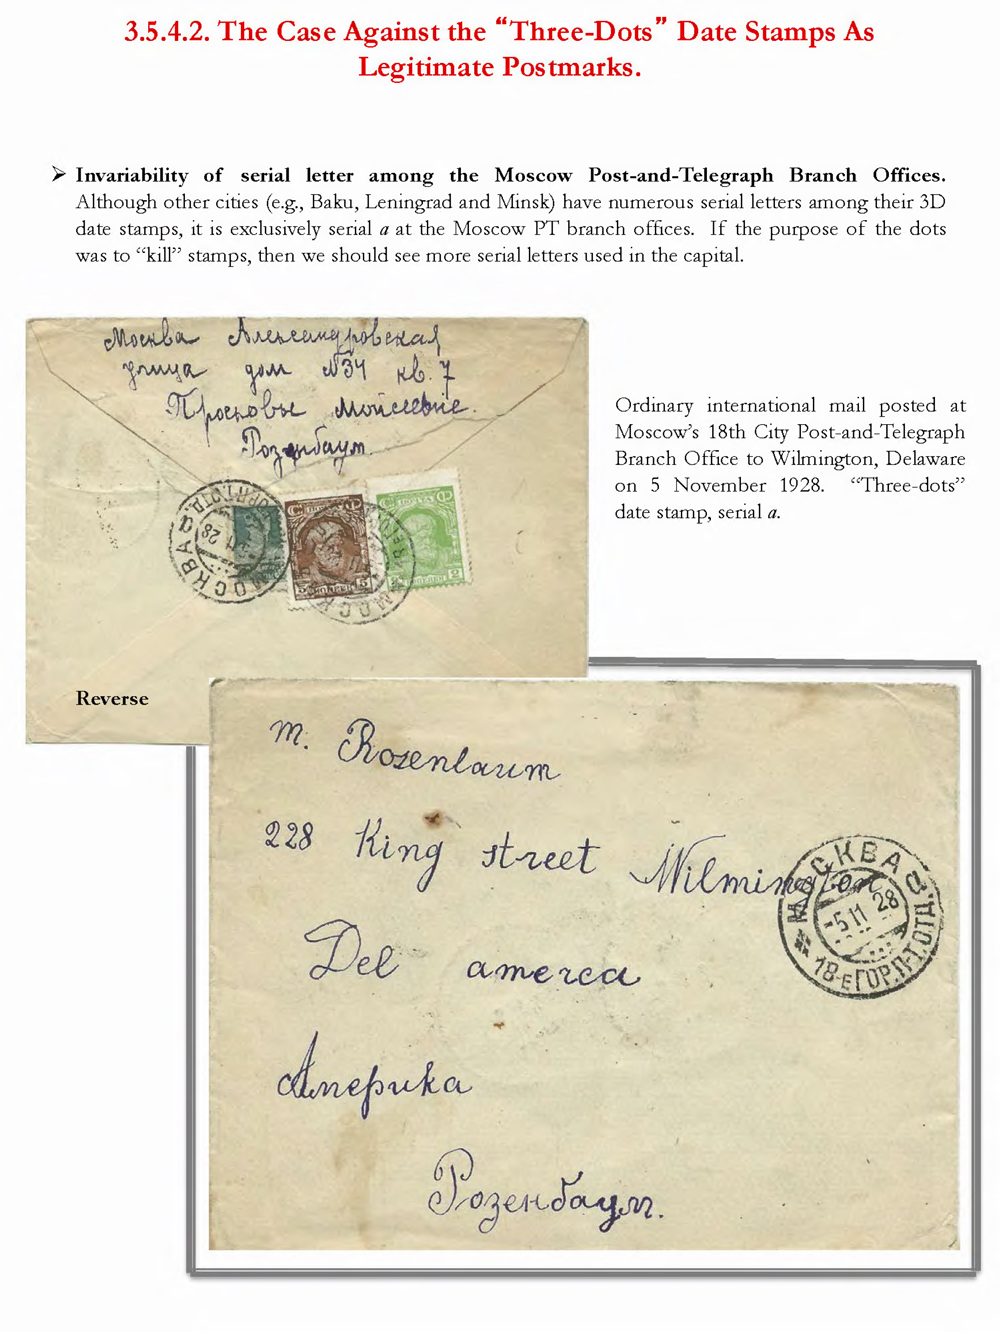 3.5.4.2. The Case Against the “Three-Dots” Date Stamps As
Legitimate Postmarks.
➢ Invariability of serial letter among the Moscow Post-and-Telegraph Branch Offices.
Although other cities (e.g., Baku, Leningrad and Minsk) have numerous serial letters among their 3D
date stamps, it is exclusively serial a at the Moscow PT branch offices. If the purpose of the dots
was to “kill” stamps, then we should see more serial letters used in the capital.
Москва Александровская
улица дом №34 кв. 7
Просковье Мойсеевне.
Розенбаум.
МОСКВА а
-5 11 28
ПОЧТА
5 КОПЕЕК 5
МОСК
2
Ordinary international mail posted at
Moscow’s 18th City Post-and-Telegraph
Branch Office to Wilmington, Delaware
on 5 November 1928. “Three-dots”
date stamp, serial a.
Reverse
m. Rozenbaum
228 King street Wilmington
Del amerca
Америка
Розенбаум.
МОСКВА а
-5 11 28
18-е ГОР.П-Т.ОТД.